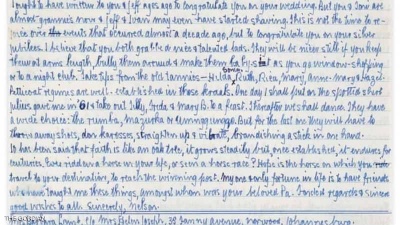 I ought to have written to you & Jeff ages ago to congratulate you on your wedding. But you & Jeff are
almost grannies now & Jeff & Ivan may even have started shaving. This is not the time to re-
over the events that occurred almost a decade ago, but to congratulate you on your silver
jubilee. I believe that you both are nice & talented lads. They will be nicer still if you keep
them at arms length, bully them around & make them as you go window-shopping
or to a night club. Take tips from the old nannies - Hilda, Ruth, Rica, Mary, Anne-Mary & Hazel.
figures are well established in those kraals. One day I shall put on the spotted shirt
Julius gave me in '61 & take out Lilly, & Mary B. to a feast. Thereafter we shall dance. They have
a wide choice: the rumba, mazurka or umngqungqo. But for the last one they will have to
throw away shoes, don kaross, straighten up & vibrate, brandishing a stick in one hand.
It has been said that faith is like an oak tree, it grows steadily but once established, it endures for
centuries. Ever ridden a horse in your life, or seen a horse race? Hope is the horse on which you
travel to your destination, to reach the winning post. My one & only fortune in life is to have friends
who have taught me these things, amongst whom was your beloved Pa. Fondest regards & sincere
good wishes to all. Sincerely, Nelson.
Barbara Lamb, c/o Mrs Helen Joseph, 35 Fanny Avenue, Norwood, Johannesburg.